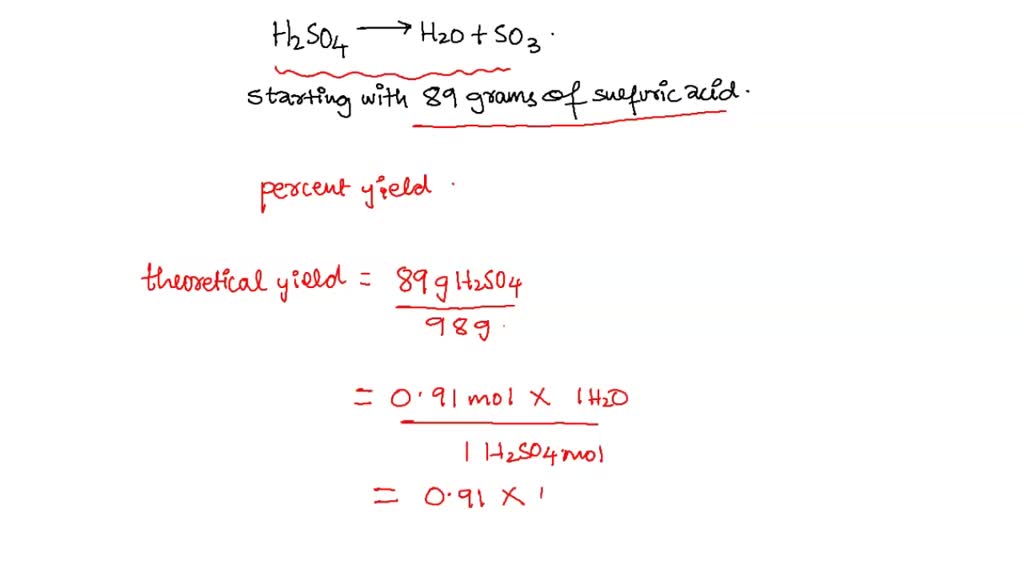 H₂SO₄ → H₂O + SO₃.
starting with 89 grams of sulfuric acid.
percent yield .
theoretical yield = 89g H₂SO₄
98g.
= 0.91 mol × 1 H₂O
1 H₂SO₄ mol
= 0.91 × 1